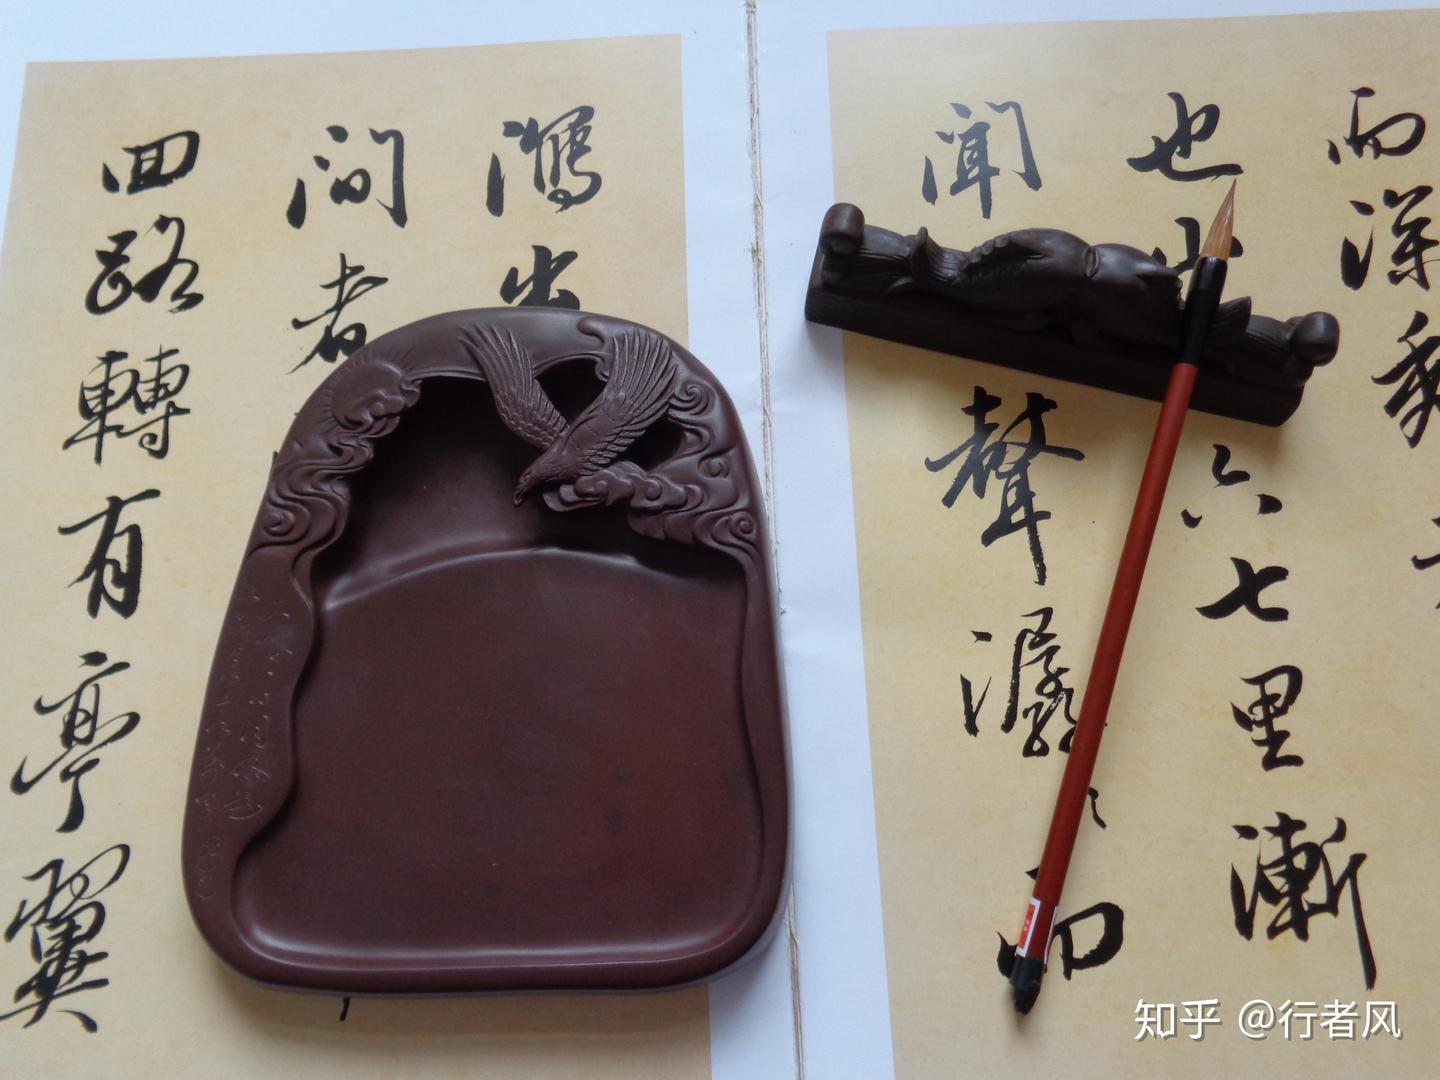 而深秀
也山六七里漸
聞聲潺〻而
瀉出
間者
回路轉有亭翼
知乎 @行者风